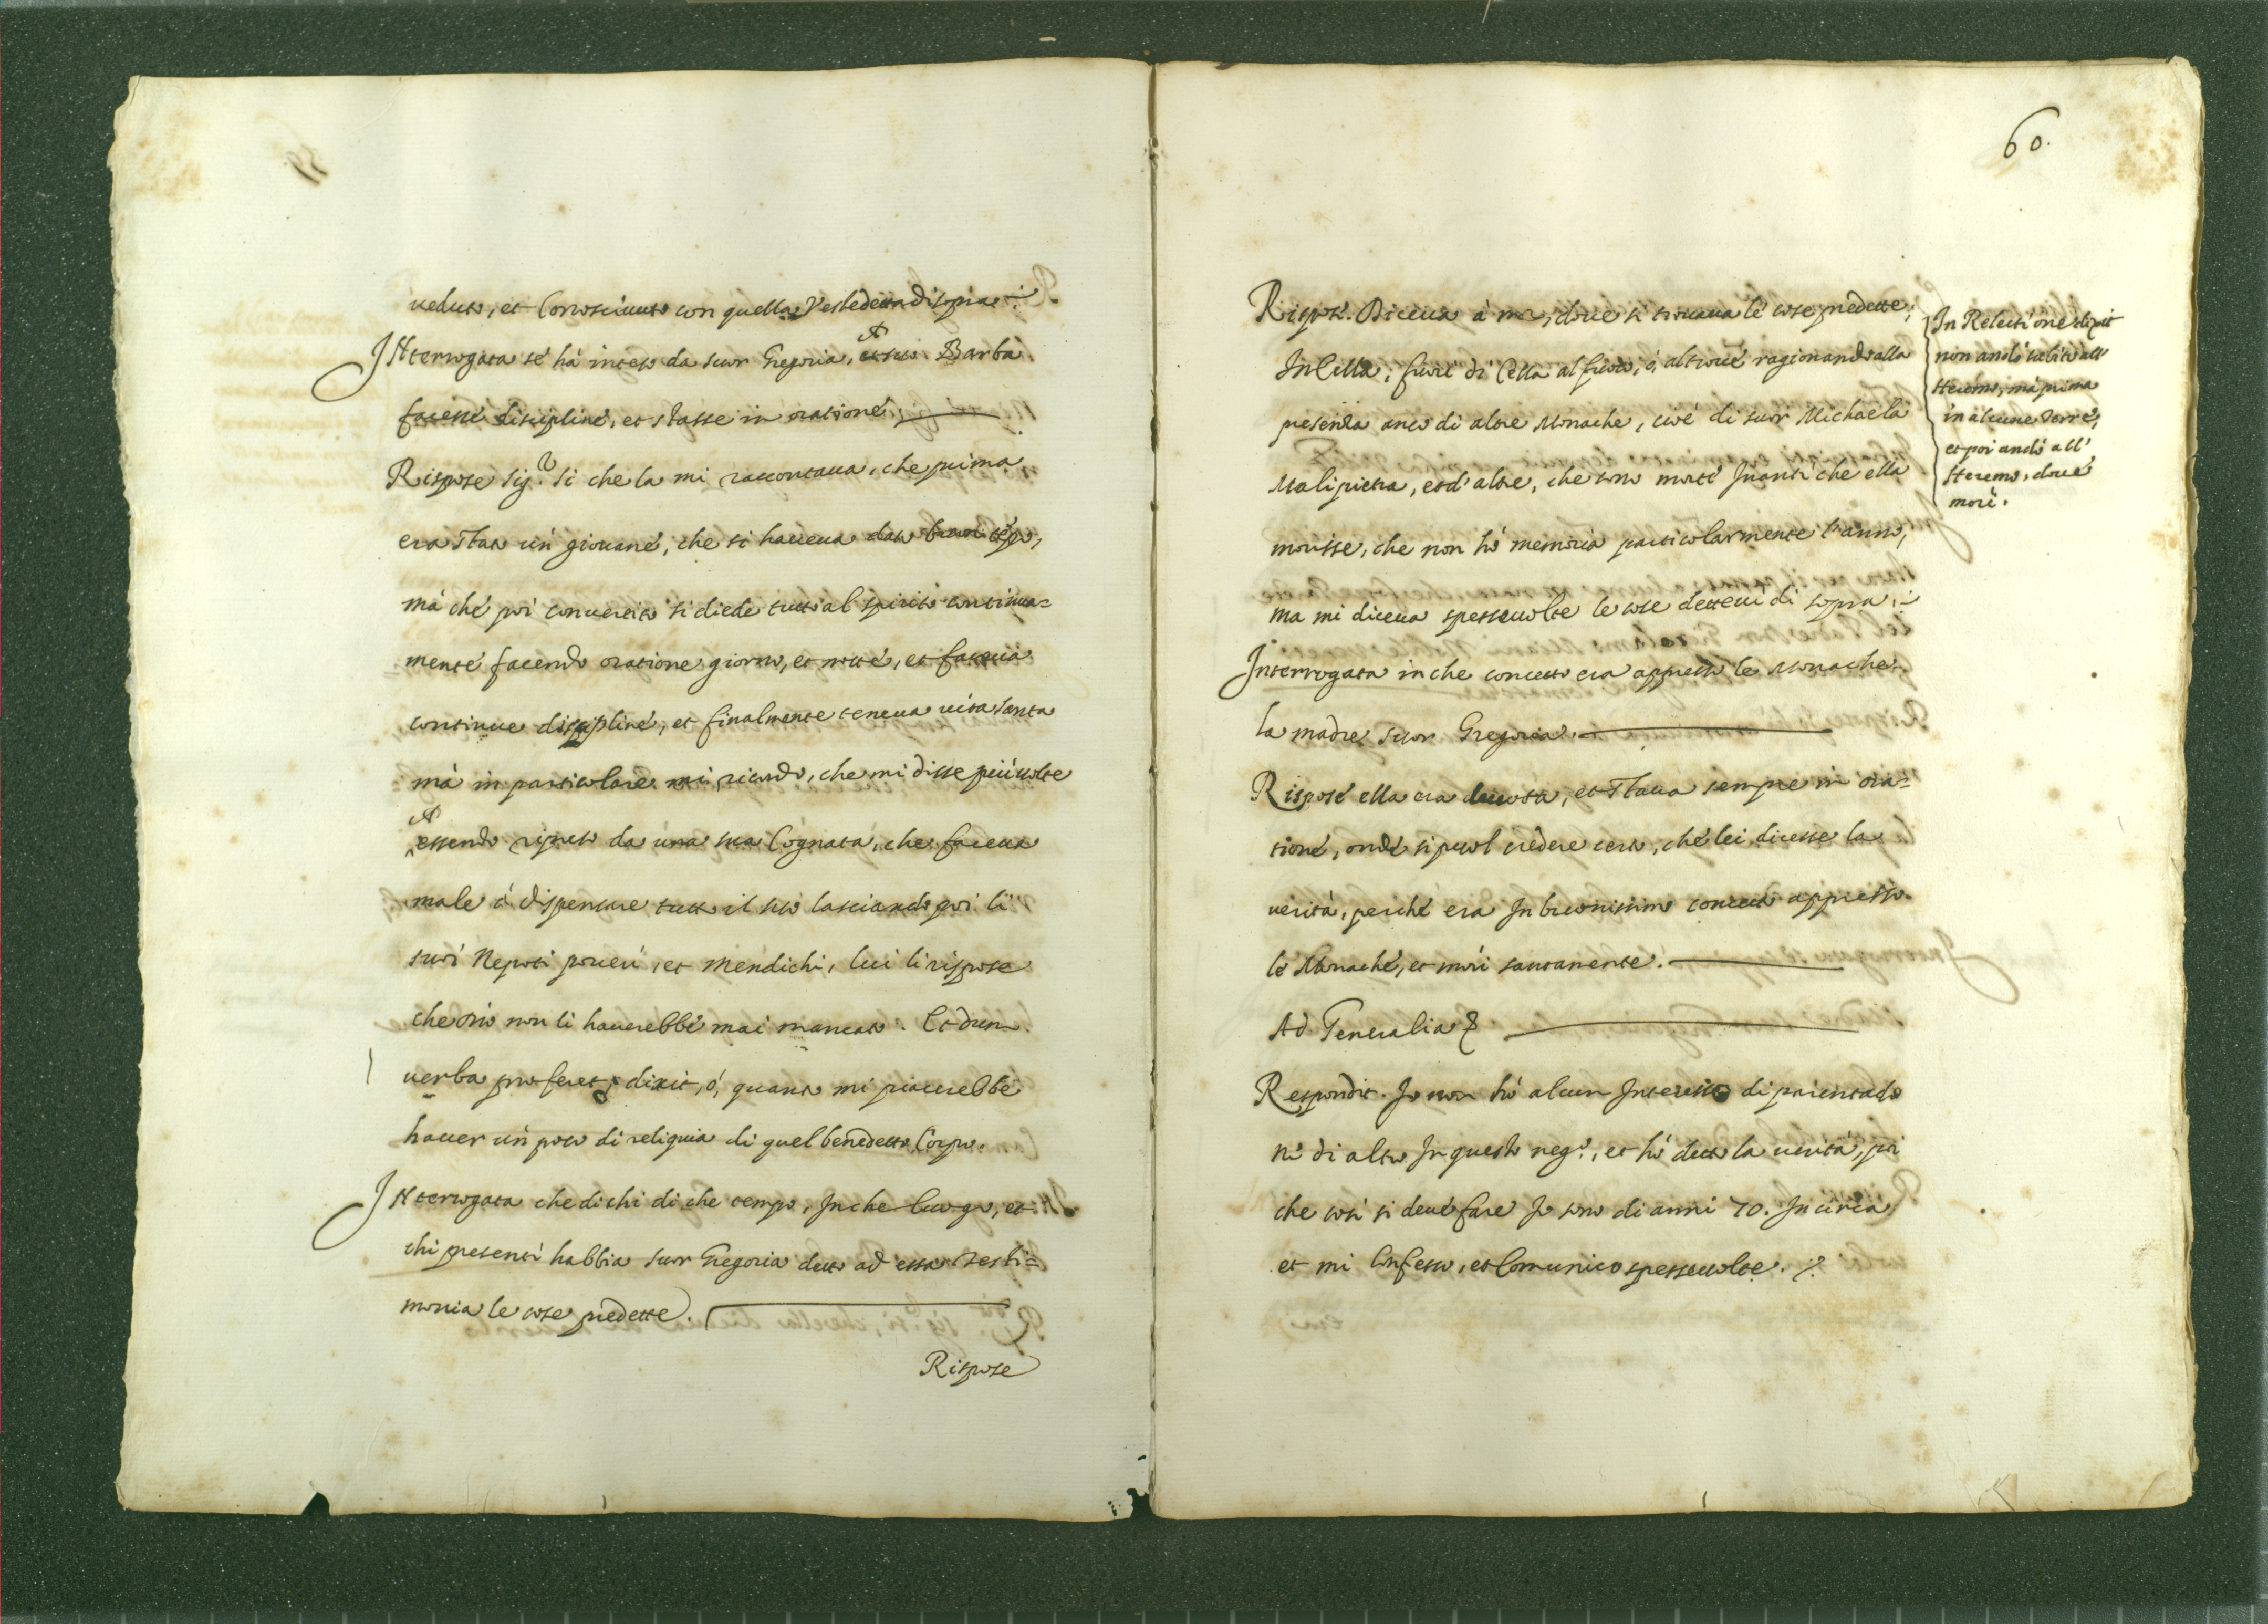 ueduto, et Conosciuuto con quella Veste detta di sopra.
INterrogata se hà inteso da suor Gregoria, Barba
facesse discipline, et stasse in oratione.
Rispose Sig.ʳ Si che la mi raccontaua, che prima
era stato un giouane, che si haueua dato buon tẽpo,
mà che poi conuertito si diede tutto al spirito continua=
mente facendo oratione giorno, et notte, et faceua
continue discipline, et finalmente teneua uita santa
mà in particolare mi ricordo, che mi disse più uolte
essendo ripreso da una sua Cognata, che faceua
male à dispensare tutto il suo lasciando poi li
suoi Nepoti poueri, et mendichi, lui li rispose
che Dio non li hauerebbe mai mancato. Et dum
uerba proferet, dixit, ó, quanto mi piacerebbe
hauer un poco di reliquia di quel benedetto Corpo.
INterrogata che dichi di che tempo, In che luogo, et
chi presenti habbia suor Gregoria detto ad essa Testi=
monia le cose predette.
Rispose
60.
Rispose. Diceua à me, doue si trouaua le cose predette;
In Cella, fuori di Cella al fuoco, ó altroue ragionando alla
presenza anco di altre Monache, cioè di suor Michaela
Malipietra, et d'altre, che sono morte Inanti che ella
morisse, che non hò memoria particolarmente l'anno,
ma mi diceua spesseuolte le cose detteui di sopra.
Interrogata in che concetto era appresso le Monache
la madre suor Gregoria.
Rispose ella era deuota, et staua sempre in ora=
tione, onde si puol credere certo, che lei dicesse la
uerità, perche era In buonissimo concetto appresso
le Monache, et morì santamente.
Ad Generalia
Respondit. Io non hò alcun Interesse di parentado
nè di altro In questo neg.º, et hò detto la uerità, poi
che così si deue fare Io sono di anni 70. In circa
et mi Confesso, et Comunico spesseuolte.
In Relectione dixit
non andò subito all'
Heremo, mà prima
in alcune Terre,
et poi andò all'
Heremo, doue
morì.